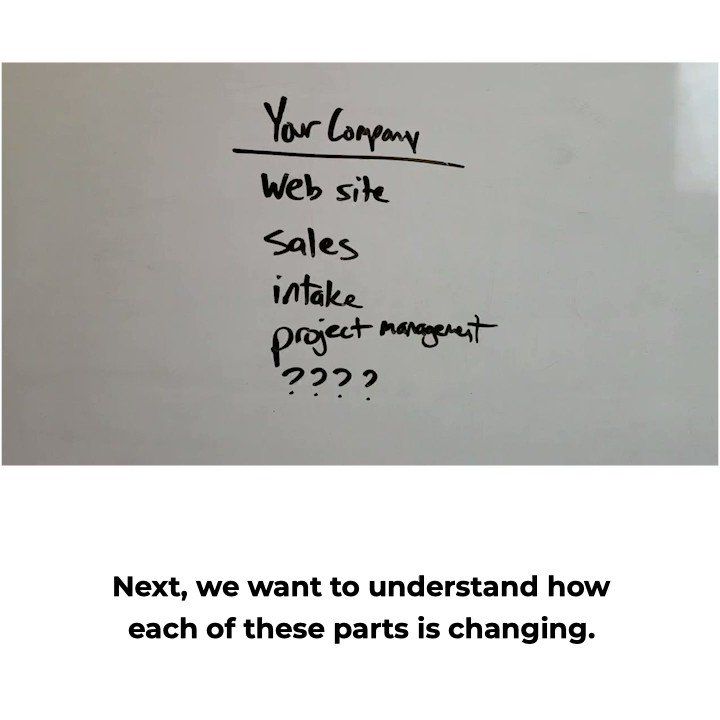 Your Company
Web site
Sales
intake
project management
????
Next, we want to understand how
each of these parts is changing.